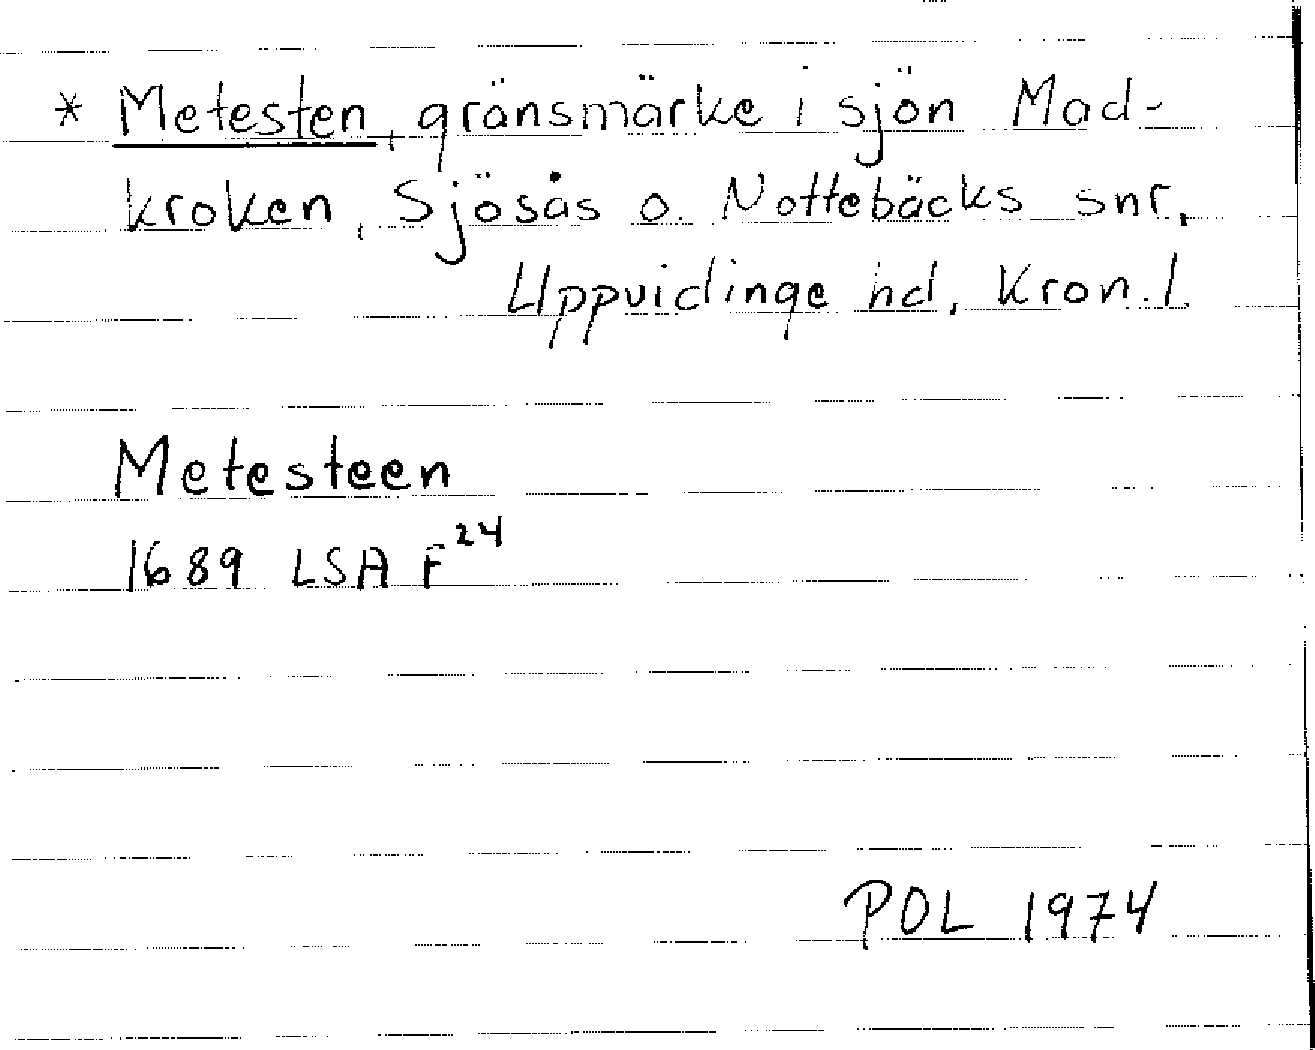 * Metesten, gränsmärke i sjön Mad-
kroken, Sjösås o. Nottebäcks snr,
Uppvidinge hd, Kron. l.
Metesteen
1689 LSA F24
POL 1974